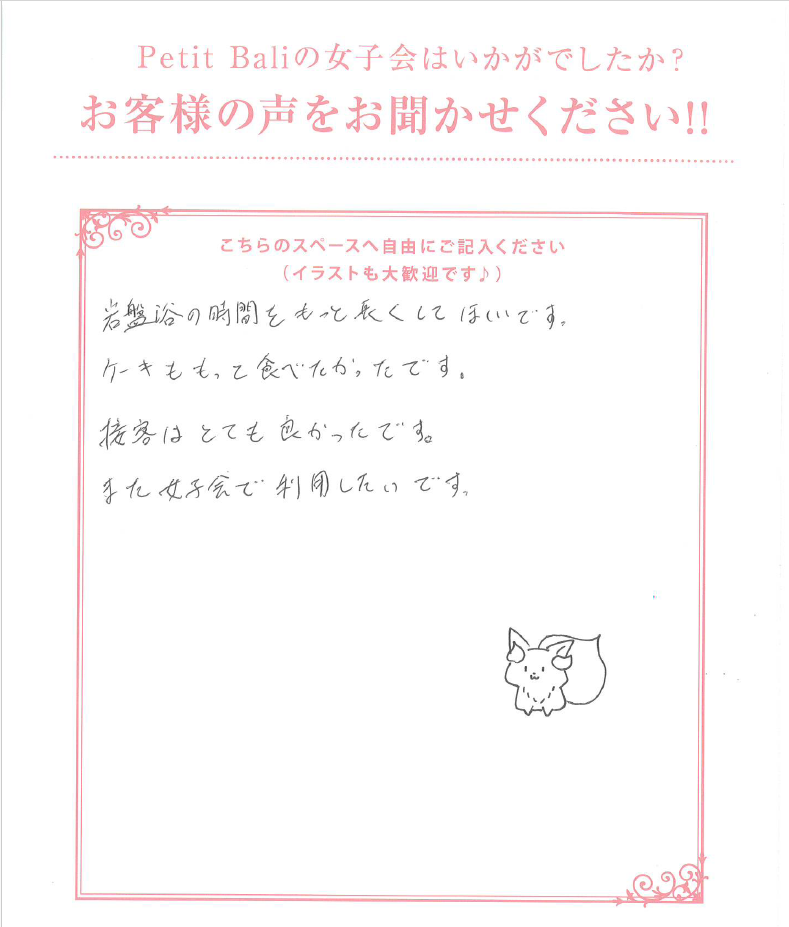 Petit Baliの女子会はいかがでしたか?
お客様の声をお聞かせください!!
こちらのスペースへ自由にご記入ください
(イラストも大歓迎です♪)
岩盤浴の時間をもっと長くしてほしいです。
ケーキももって食べたかったです。
接客はとても良かったです。
また女子会で利用したいです。